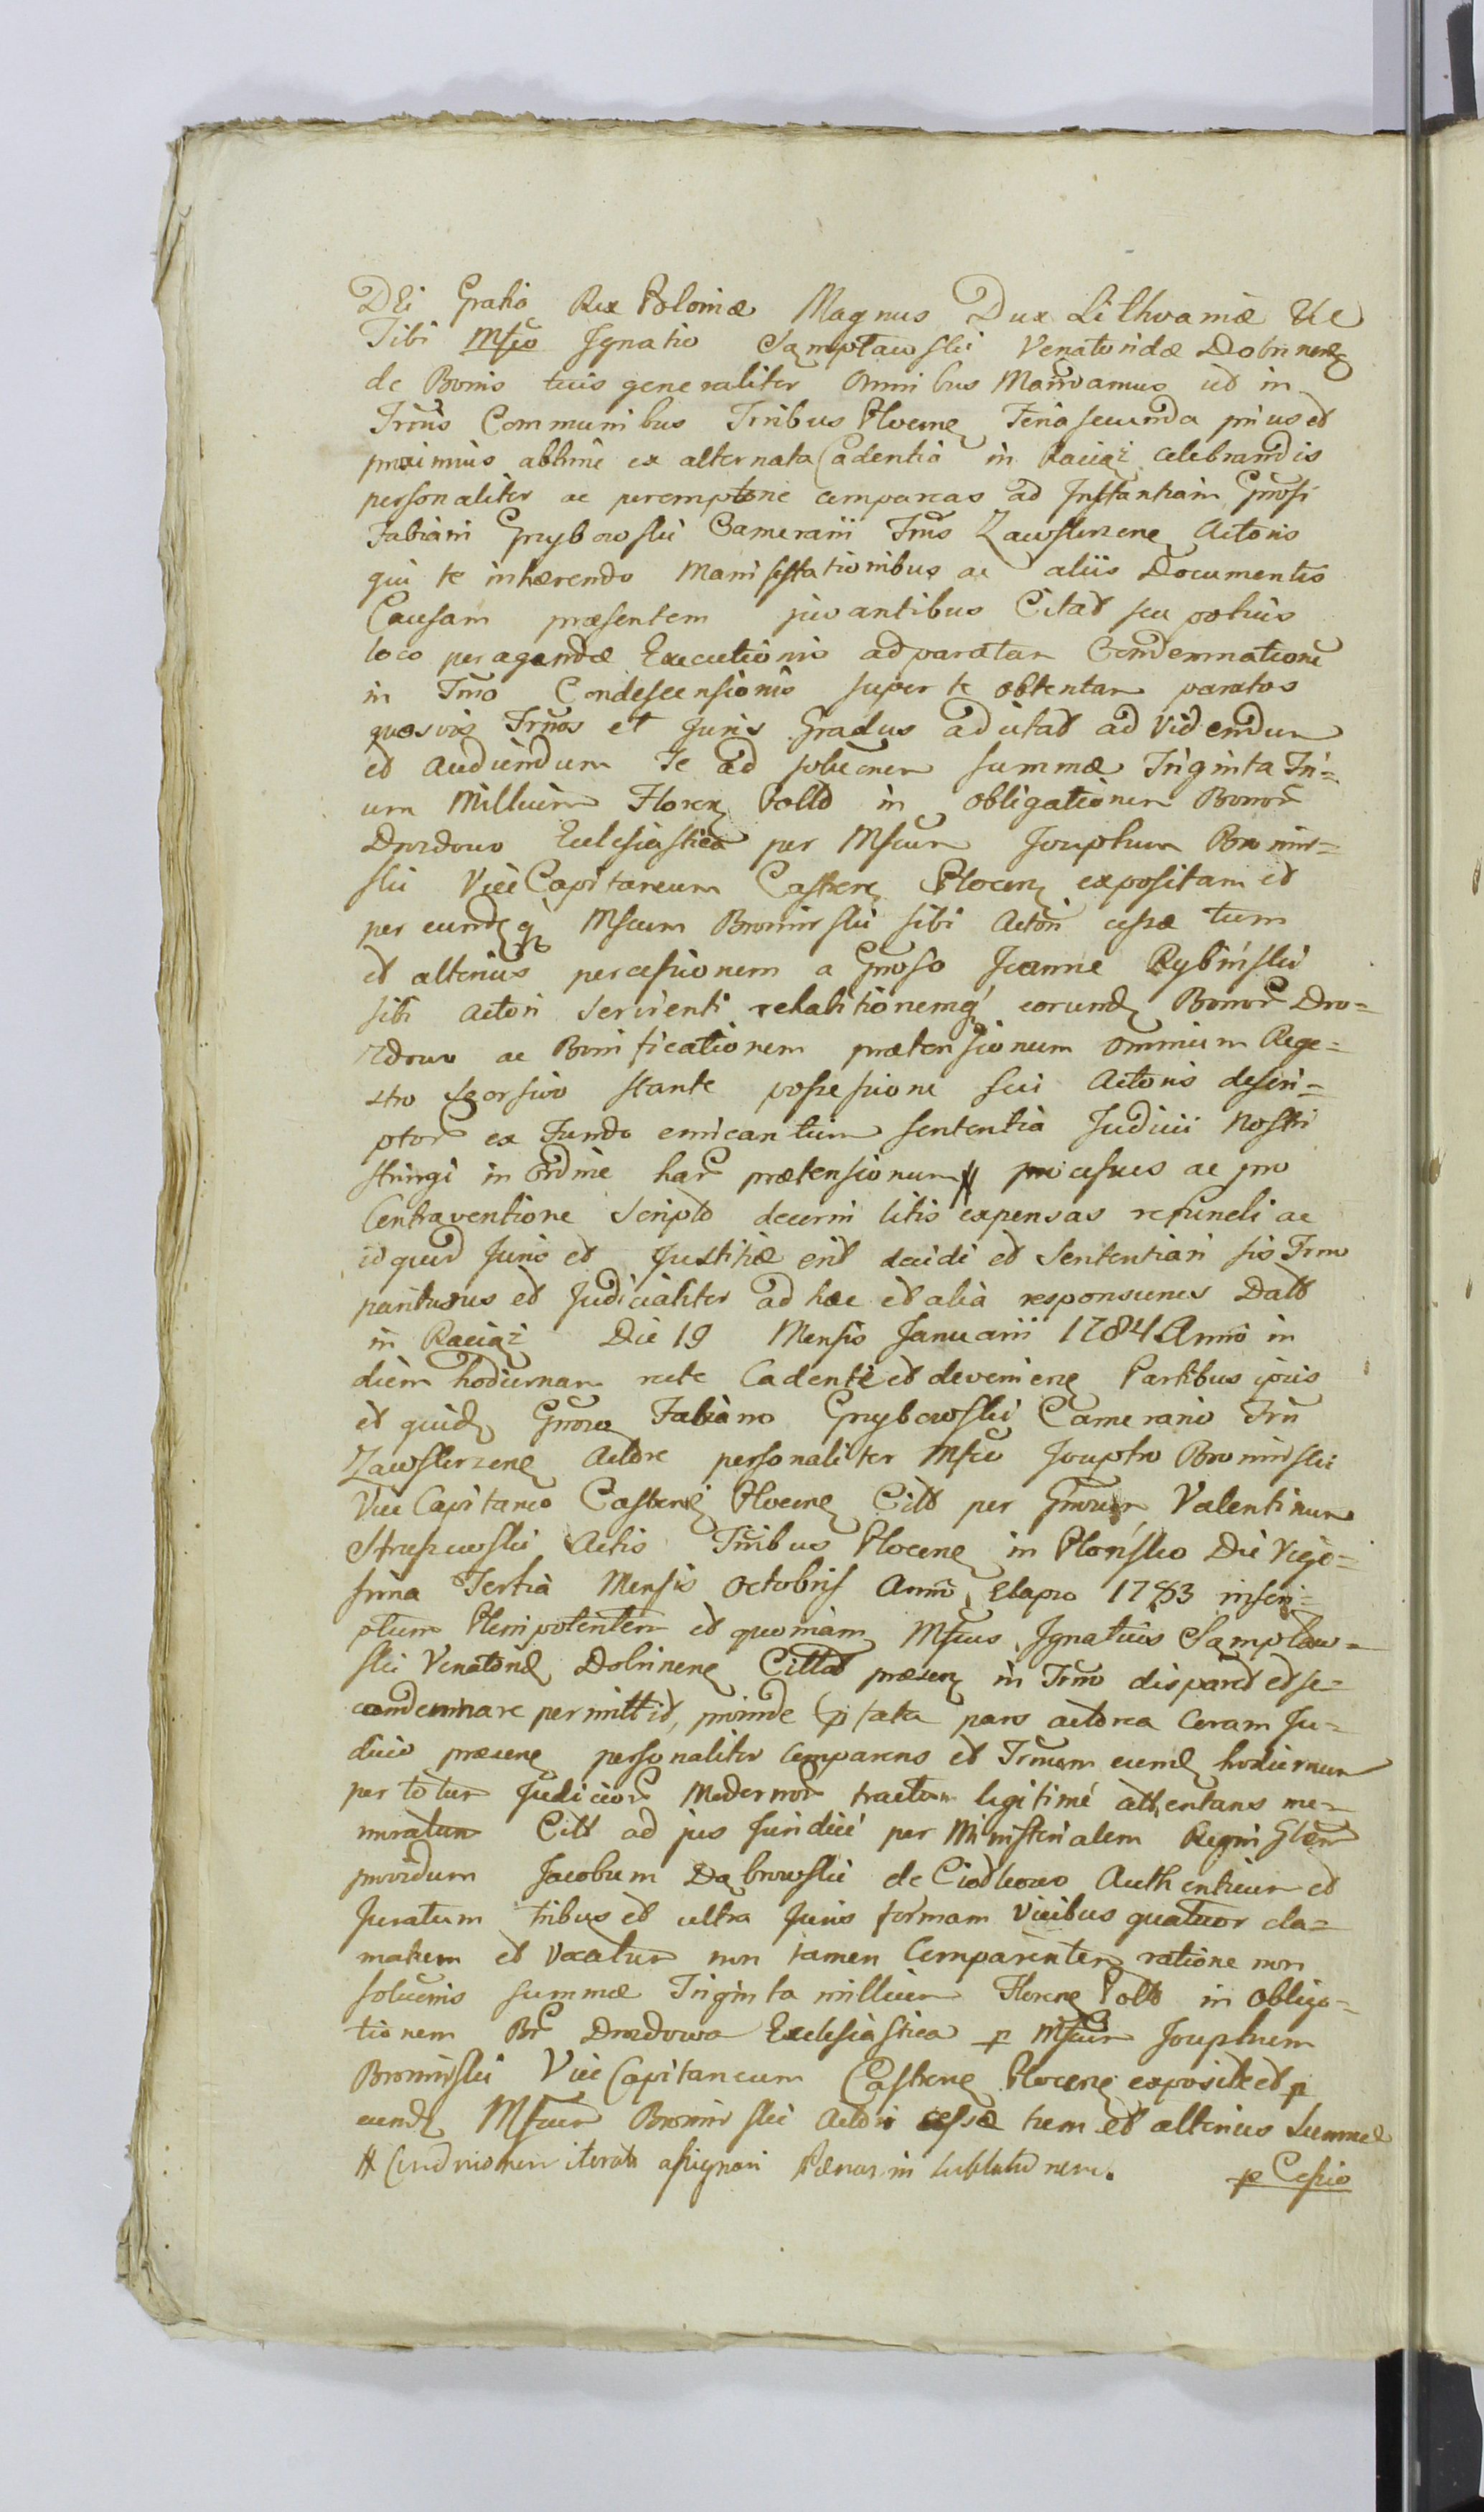 DEi Gratia Rex Poloniæ Magnus Dux Lithvaniæ &c
Tibi Mfco Jgnatio Sampławski Venatoridæ Dobrinens
de Bonis tuis generaliter omnibus Mandamus ut in
Trrüs Communibus Trribus Plocens Feria secunda prius et
proximius abhinc ex alternata Cadentia in Raciąż celebrandis
personaliter ac peremptorie compareas ad Jnstantiam Gnrosi
Fabiani Grzybowski Camerarii Trrüs Zawskrzens Actoris
qui te inhærendo Manifestationibus ac aliis Documentis
Causam præsentem juvantibus Citat seu potius
loco peragendæ Executionis ad paratam Condemnationē
in Trmo Condescensionis super te obtentam paratos
quosvis Trmos et Juris Gradus adcitat ad videndum
et audiendum Te ad solüonem summæ Triginta Tri=
um Millium Floren Polld in obligationem Bonor
Drozdowo Ecclesiastica per Mfcum Josephum Bromir=
ski Vice Capitaneum Castren Plocen expositam et
per eundq Mfcum Bromirski sibi Actori cessæ tum
et alterius per cessionem a Gnroso Joanne Rybiński
sibi Actori servienti rehabitionemq eorund Bonor Dro=
zdowo ac Bonificationem prætensionum omnium Rege=
stro seorsivo stante possessione sui Actoris descri=
ptor ex Fundo emicantium sententia Judicii Nostri
stringi in ordine har prætensionum # processus ac pro
Contraventione Scripto decerni litis expensas refundi ac
id quod Juris et Justitiæ erit decidi et Sententiari sis Trmo
pariturus et Judicialiter ad hæc et alia responsurus Datt
in Raciąż Die 19 Mensis Januarii 1784 Anno in
diem hodiernam recte Cadente et devenien Partibus ipsis
et quid Gnroso Fabiano Grzybowski Camerario Trrü
Zawskrzens Actore personaliter Mfco Josepho Bromirski
Vice Capitaneo Castren Plocens Citt per Gnrosum Valentinum
Struszewski Actis Trribus Plocens in Płońsko Die Vige=
sima Tertia Mensis Octobris Anno Elapso 1783 inscri=
ptum Plenipotentem et quoniam Mfcus Jgnatius Sampław=
ski Venatorid Dobrinens Cittat præsen in Trmo disparet et se=
condemnare permittit, proinde pttata pars actorea Coram Ju=
dicio præsens personaliter Comparens et Trmum eumd hodiernum
per totum Judicior Modernor tractum legitime attentans me=
moratum Citt ad jus Juridice per Ministerialem Regni Glem
providum Jacobum Dąbrowski de Ciodkowo Authenticum et
Juratum tribus et ultra Juris formam vicibus quatuor cla=
matum et vocatum non tamen Comparentem ratione non
solüonis summæ Triginta millium Florens Polld in obliga=
tionem Br Drozdowo Ecclesiastica p Mfcum Josephum
Bromirski Vice Capitaneum Castrens Plocens exposite et p
eund Mfcum Bromirski Actori cessæ tum et alterius Summæ
# Condnionem iterato assignari Pænas in
p Cessio